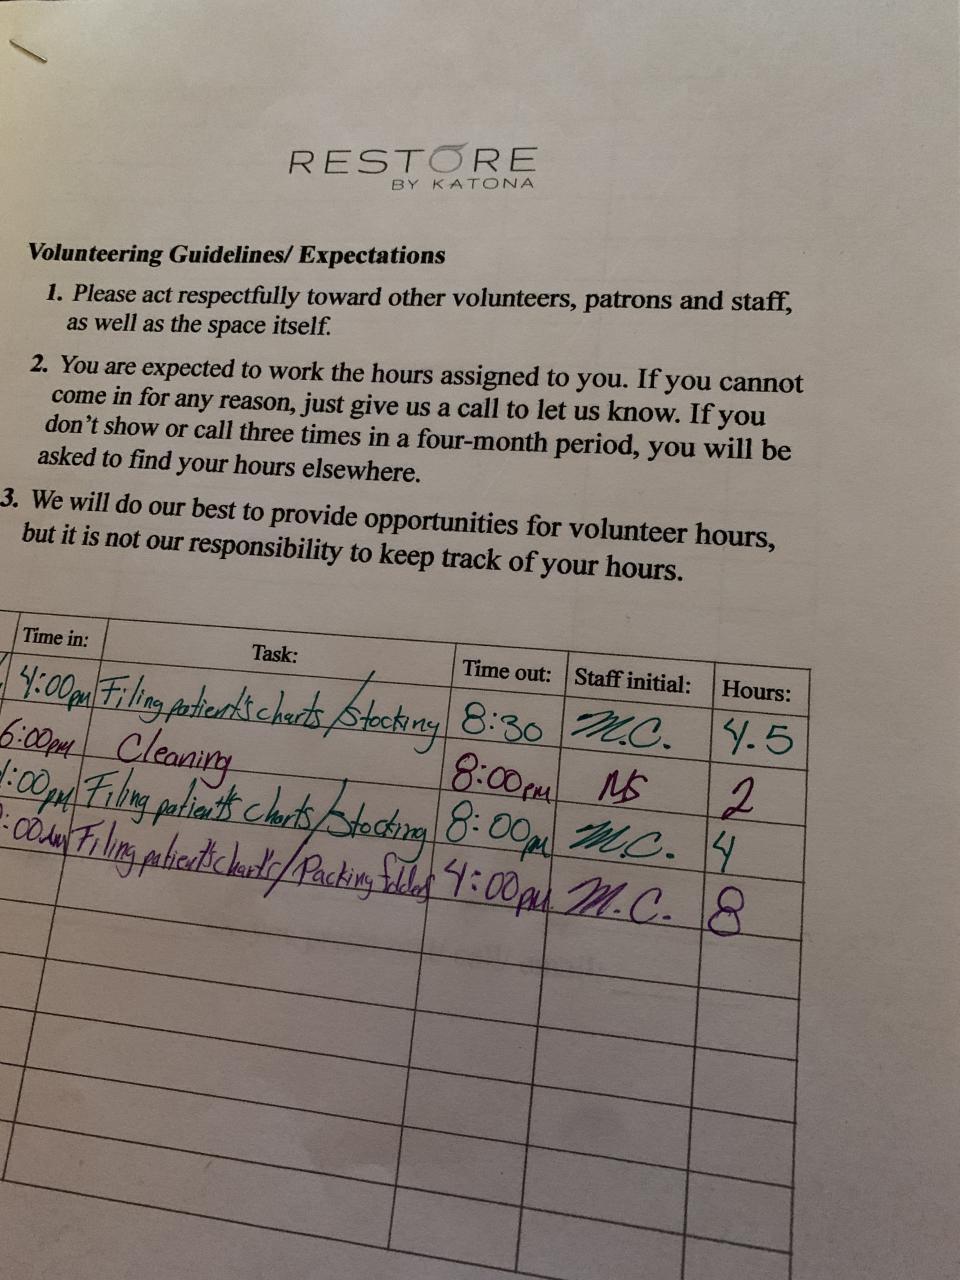 RESTORE
BY KATONA
Volunteering Guidelines/ Expectations
1. Please act respectfully toward other volunteers, patrons and staff,
as well as the space itself.
2. You are expected to work the hours assigned to you. If you cannot
come in for any reason, just give us a call to let us know. If you
don't show or call three times in a four-month period, you will be
asked to find your hours elsewhere.
3. We will do our best to provide opportunities for volunteer hours,
but it is not our responsibility to keep track of your hours.
Time in: Task: Time out: Staff initial: Hours:
4:00pm Filing patient's charts/Stocking 8:30 M.C. 4.5
6:00pm Cleaning 8:00pm NS 2
:00pm Filing patient's charts/Stocking 8:00pm M.C. 4
:00am Filing patient's charts/Packing folders 4:00pm M.C. 8